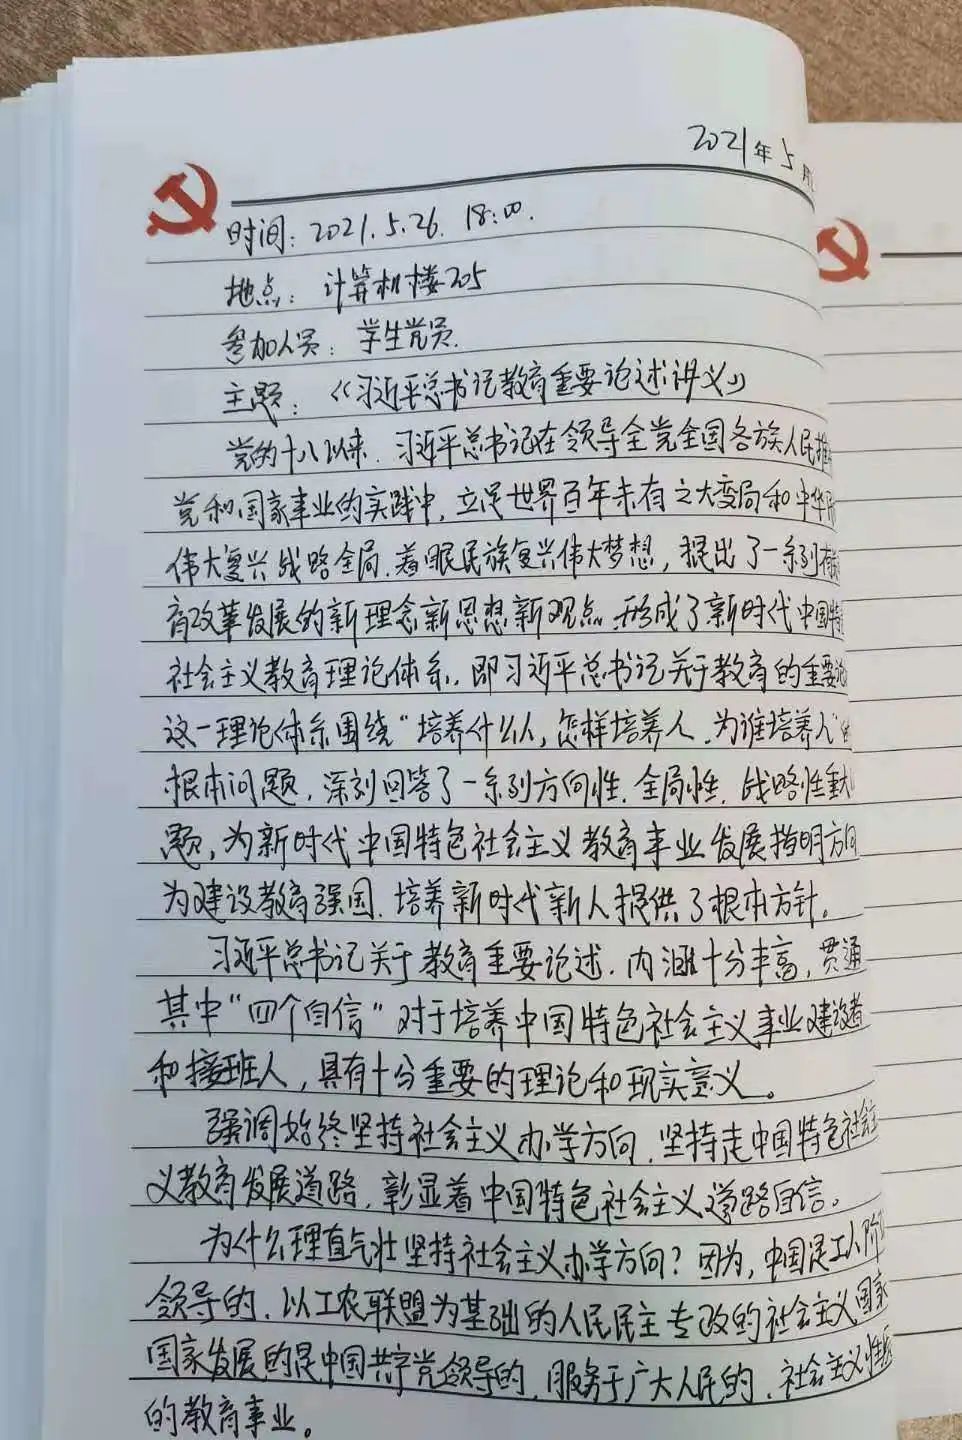 2021年5月
时间：2021.5.26. 18:00.
地点：计算机楼205
参加人员：学生党员.
主题：《习近平总书记教育重要论述讲义》
党的十八以来，习近平总书记在领导全党全国各族人民推
党和国家事业的实践中，立足世界百年未有之大变局和中华民
伟大复兴战略全局，着眼民族复兴伟大梦想，提出了一系列有
育改革发展的新理念新思想新观点，形成了新时代中国特
社会主义教育理论体系，即习近平总书记关于教育的重要论
这一理论体系围绕“培养什么人，怎样培养人，为谁培养人”的
根本问题，深刻回答了一系列方向性、全局性、战略性重大
题，为新时代中国特色社会主义教育事业发展指明方向
为建设教育强国、培养新时代新人提供了根本方针。
习近平总书记关于教育重要论述，内涵十分丰富，贯通
其中“四个自信”对于培养中国特色社会主义事业建设者
和接班人，具有十分重要的理论和现实意义。
强调始终坚持社会主义办学方向，坚持走中国特色社会主
义教育发展道路，彰显着中国特色社会主义道路自信。
为什么理直气壮坚持社会主义办学方向？因为，中国是工人阶
领导的，以工农联盟为基础的人民民主专政的社会主义国家
国家发展的是中国共产党领导的，服务于广大人民的，社会主义性质
的教育事业。